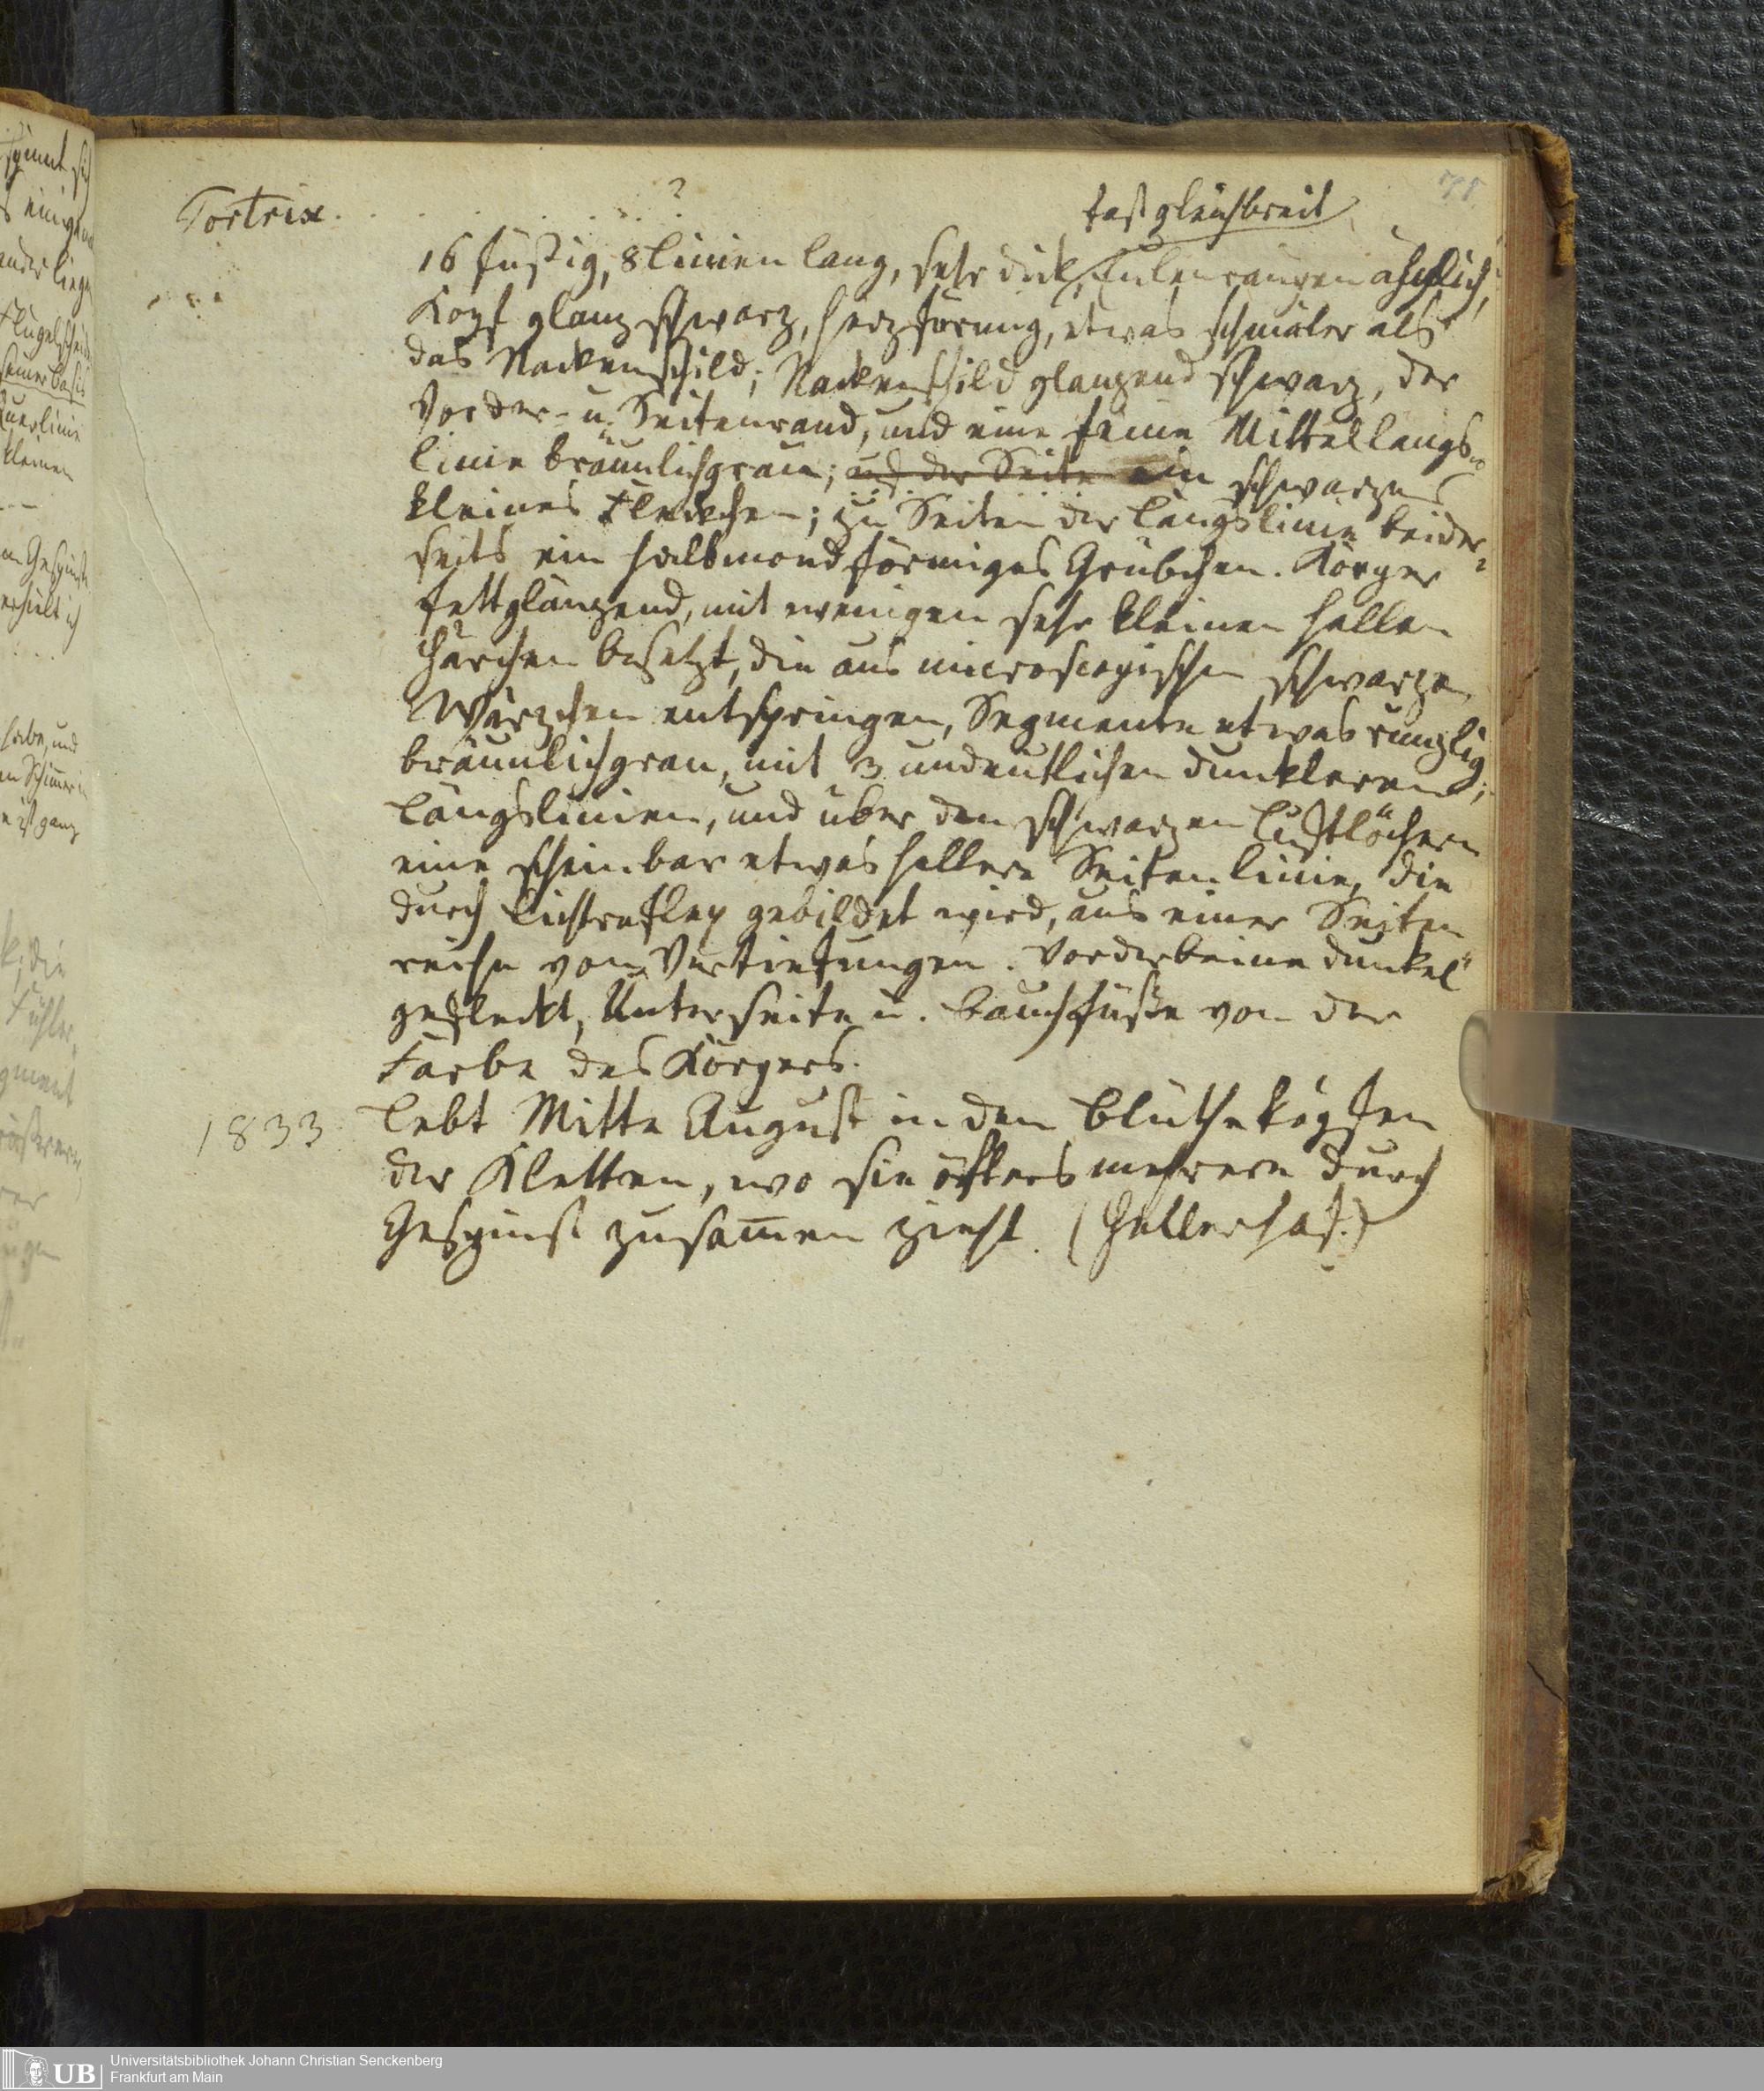 Tortrix . . . . . . . . ?
78.
fast gleichbreit
16 füßig, 8 Linien lang, sehr dick, Eulenraupen ähnlich,
Kopf glanz schwarz, herzförmig, etwas schmäler als
das Nackenschild; Nackenschild glänzend schwarz, der
Vorder- u. Seitenrand, und eine feine Mittellängs-
linie bräunlichgrau; und der Seite ein schwarzes
kleines Fleckchen; zu Seiten der Längslinie beider-
seits ein halbmondförmiges Grübchen. Körper
fettglänzend, mit wenigen sehr kleinen hellen
Härchen besetzt, die aus microscopischen schwarzen
Wärzchen entspringen, Segmente etwas runzlig,
bräunlichgrau, mit 3 undeutlichen dunkleren
Längslinien, und über den schwarzen Luftlöchern
eine scheinbar etwas hellere Seitenlinie, die
durch Lichtreflex gebildet wird, aus einer Seiten
reihe von Vertiefungen. Vorderbeine dunkel
gefleckt, Unterseite u. Bauchfüße von der
Farbe des Körpers.
1833. Lebt Mitte August in den Blütheköpfen
der Kletten, wo sie öfters mehrere durch
Gespinst zusam̅en zieht. (Hellerhof.)
spinnt sich
Flügelscheide
seiner Basis
Querlinie
kleinen
Gespinst
erhielt ich
habe, und
Schimmer
ist ganz
die
Fühler,
UB Universitätsbibliothek Johann Christian Senckenberg
Frankfurt am Main